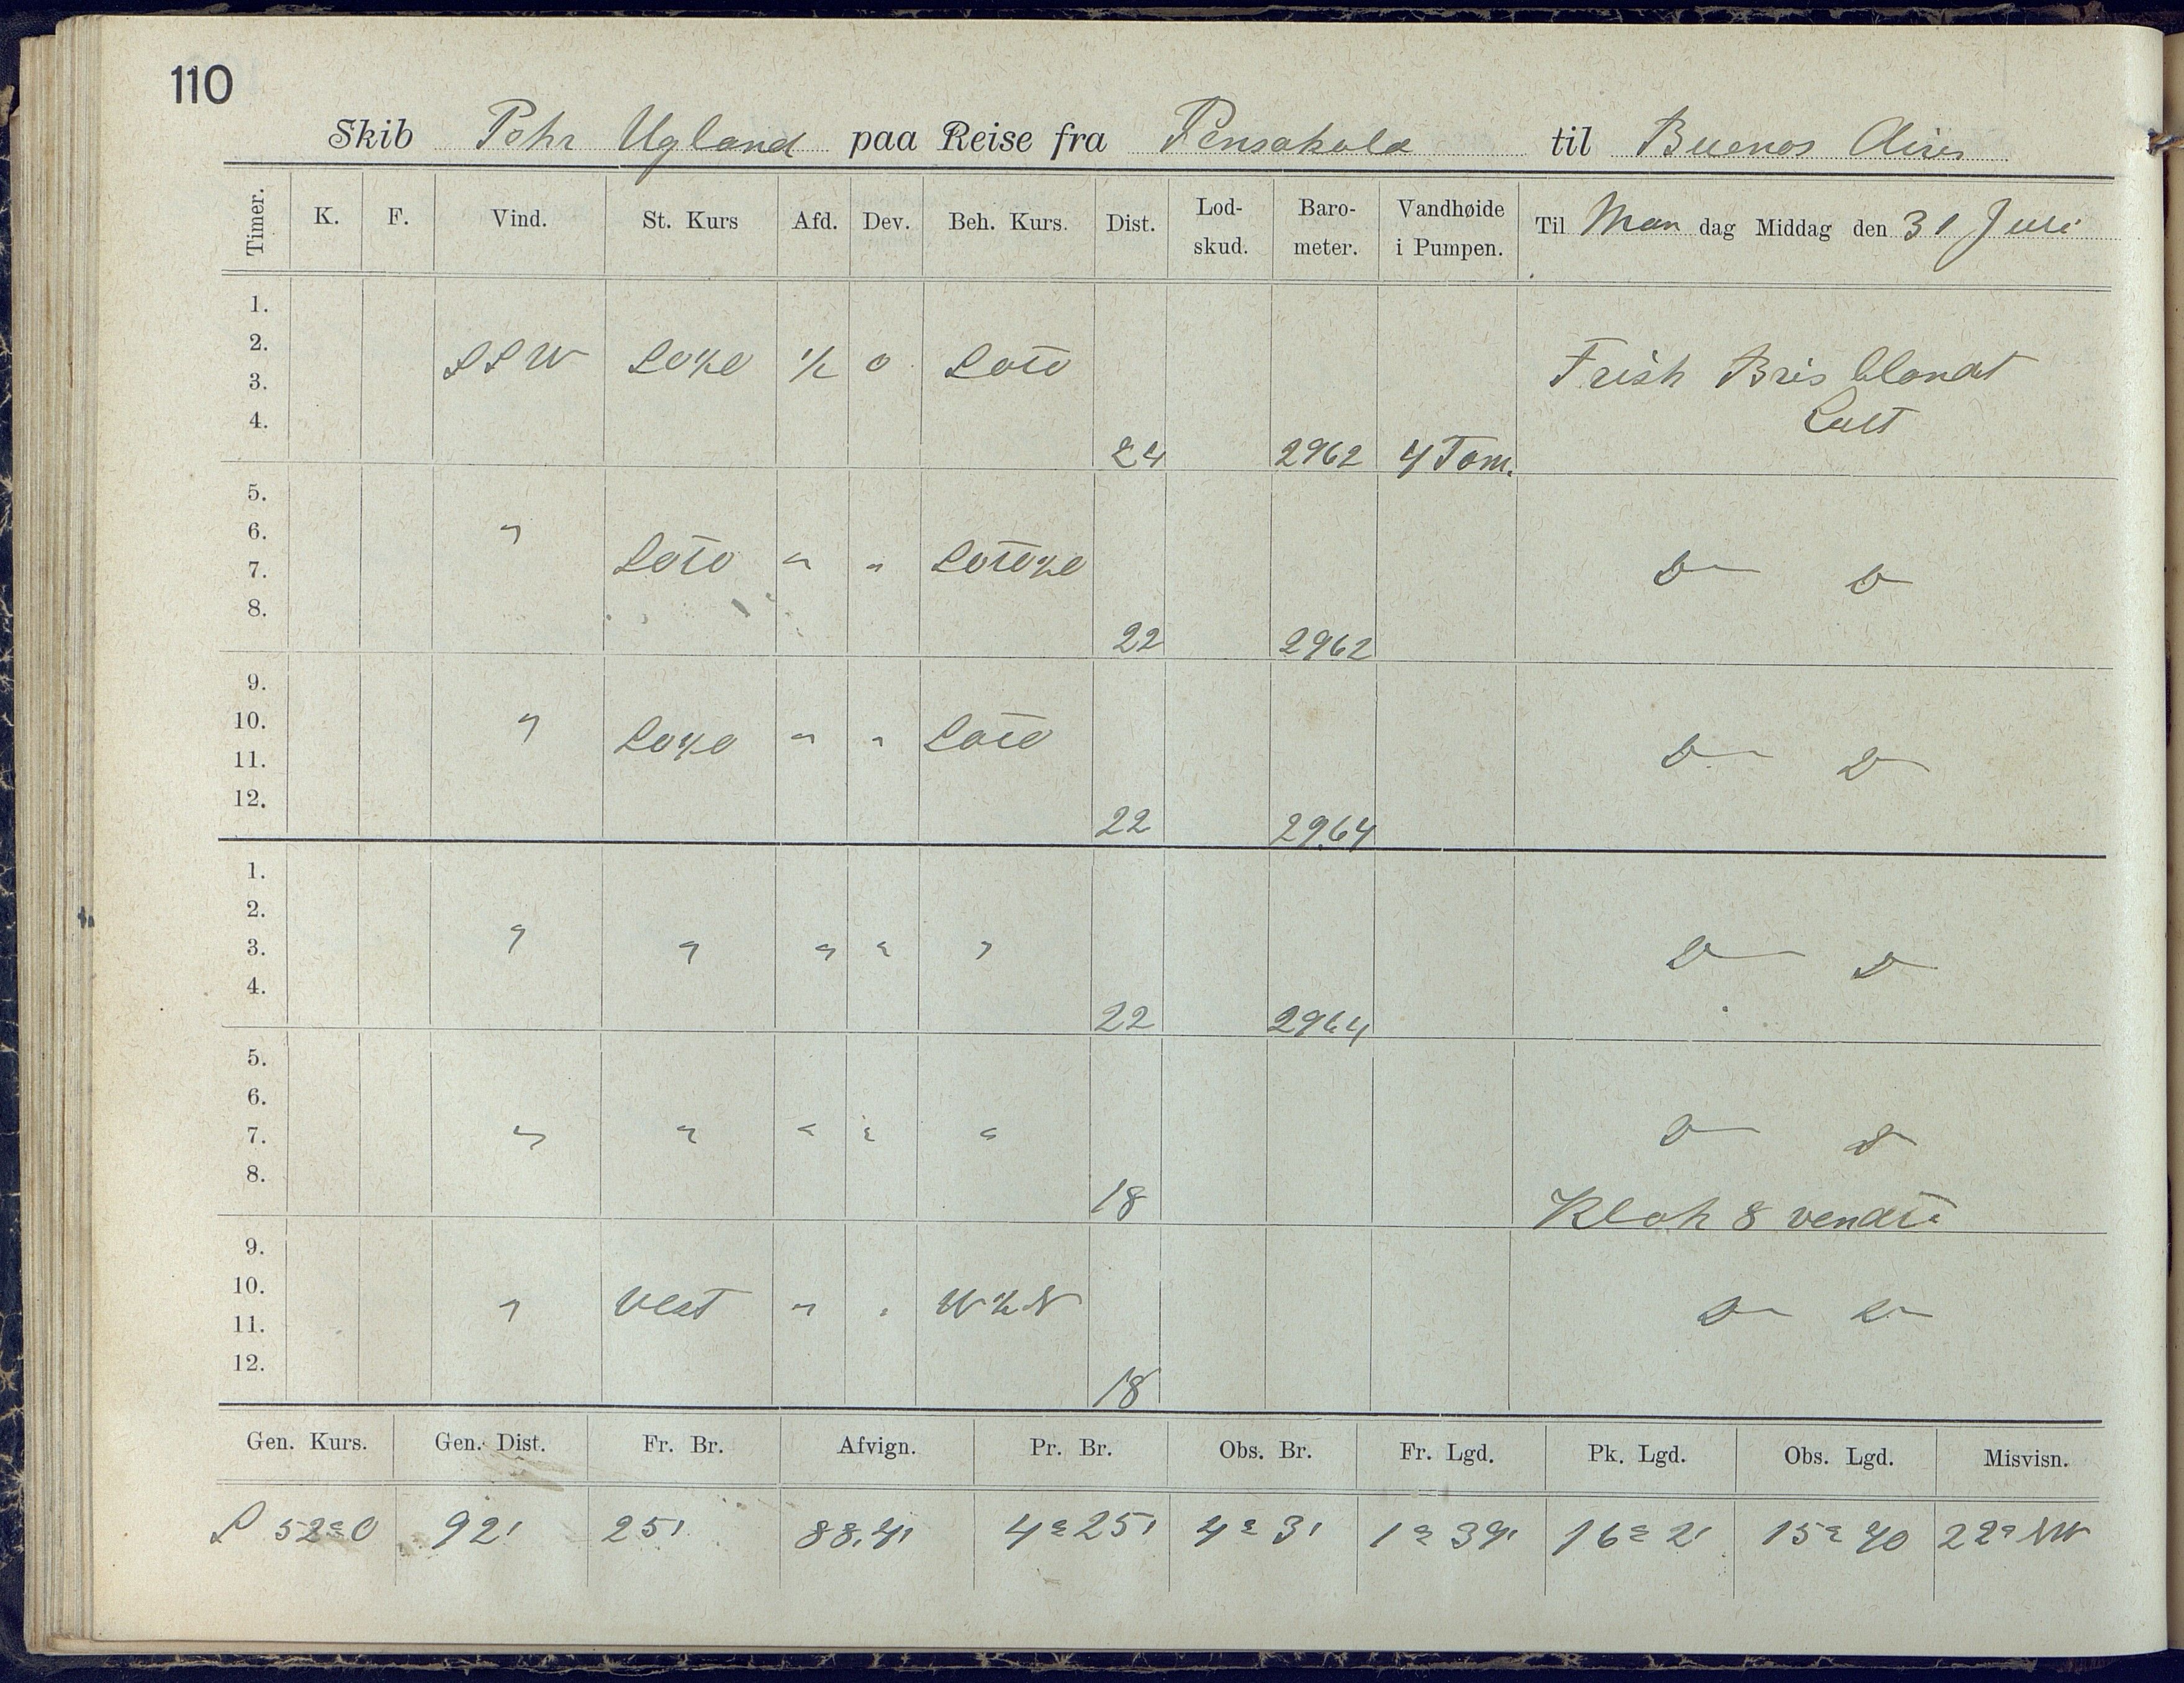 110
Skib Pehr Ugland paa Reise fra Pensakola til Buenos Aires
Timer. K. F. Vind. St. Kurs Afd. Dev. Beh. Kurs. Dist. Lod-skud. Baro-meter. Vandhøide i Pumpen. Til Man dag Middag den 31 Juli
1.
2. SSW SO½O ½ 0 SOTO Frisk Bris blandt
3.
4. Luft
24 2962 4 Tom.
5.
6. "
7. SOTO " " SOTO½O Do Do
8.
22 2962
9.
10. " SO½O " " SOTO
11. Do Do
12.
22 2964
1.
2.
3. " " " " " Do Do
4.
22 2964
5.
6.
7. " " " " " Do Do
8.
18 Klok 8 vendte
9.
10. " Vest " " W½N Do Do
11.
12.
18
Gen. Kurs. Gen. Dist. Fr. Br. Afvign. Pr. Br. Obs. Br. Fr. Lgd. Pk. Lgd. Obs. Lgd. Misvisn.
S 52° O 92' 25' 4° 25' 4° 3' 1° 39' 16° 2' 15° 40 22° NW